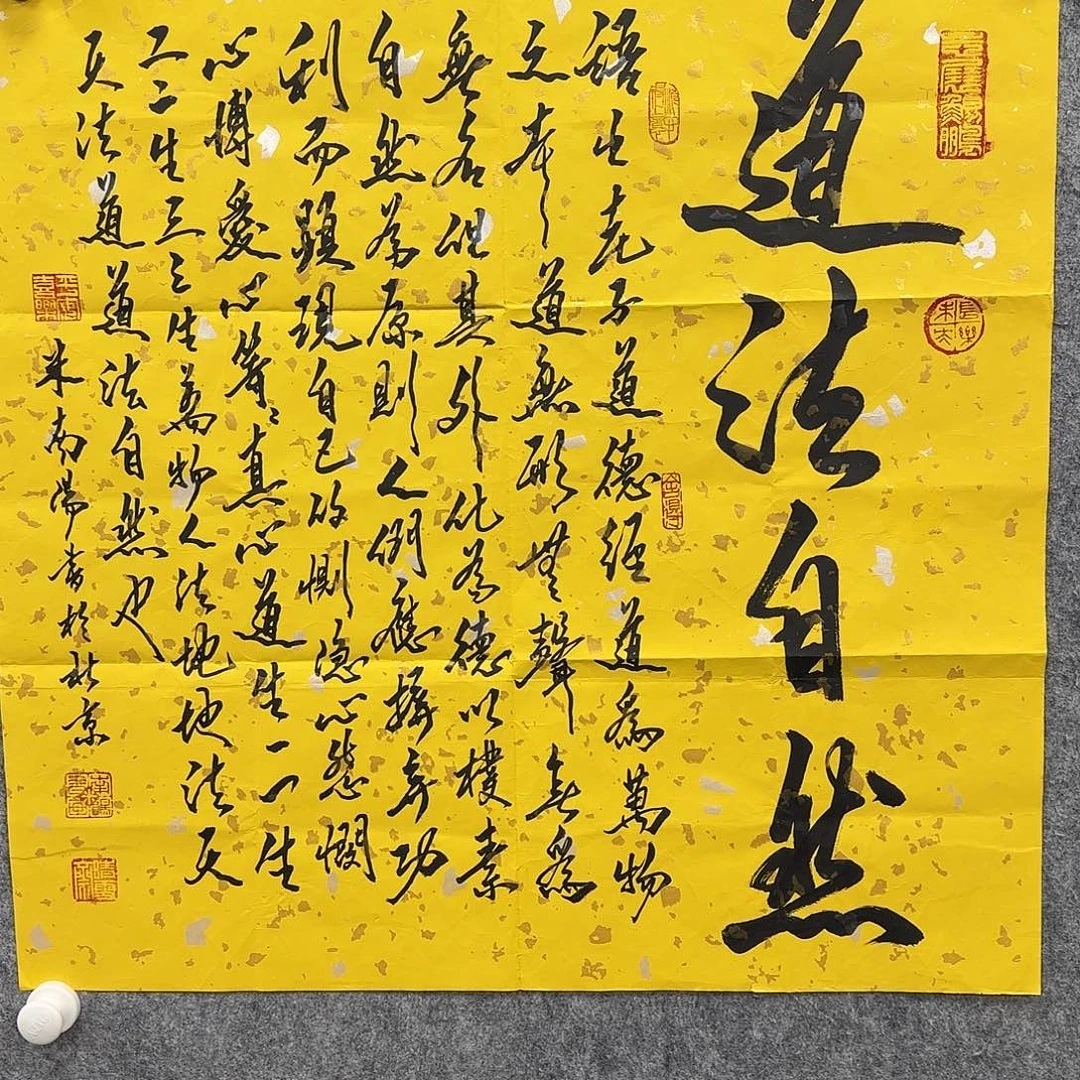 道法自然
語出老子道德經道爲萬物
之本道無形無聲無爲
無名但其外化為德以樸素
自然為原則人們應摒弃功
利而顯現自己的惻隱心慈憫
心博愛心等等真心道生一一生
二二生三三生萬物人法地地法天
天法道道法自然也
米南陽書於北京